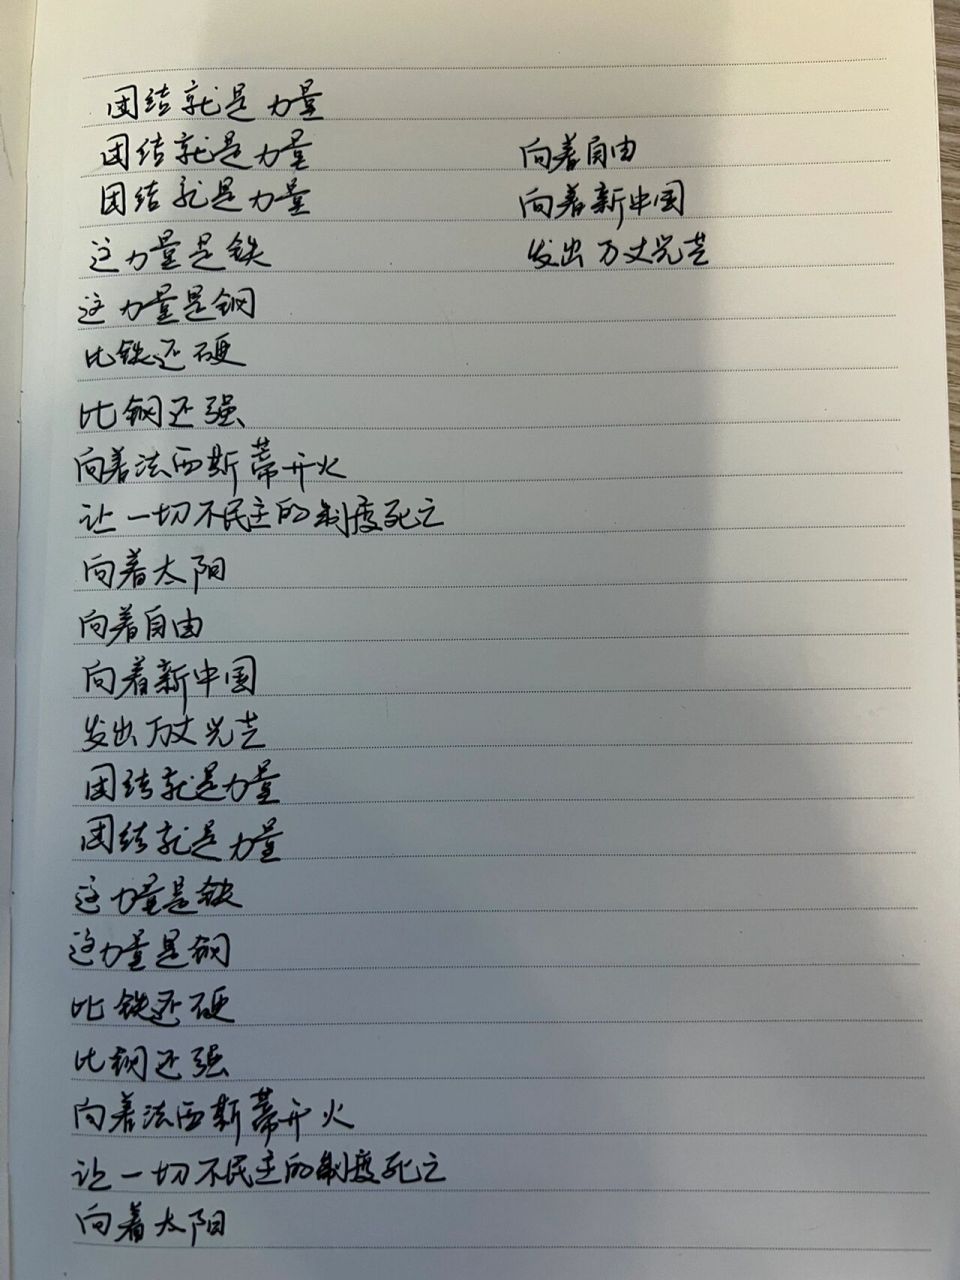 团结就是力量
团结就是力量
团结就是力量
这力量是铁
这力量是钢
比铁还硬
比钢还强
向着法西斯蒂开火
让一切不民主的制度死亡
向着太阳
向着自由
向着新中国
发出万丈光芒
团结就是力量
团结就是力量
这力量是铁
这力量是钢
比铁还硬
比钢还强
向着法西斯蒂开火
让一切不民主的制度死亡
向着太阳
向着自由
向着新中国
发出万丈光芒